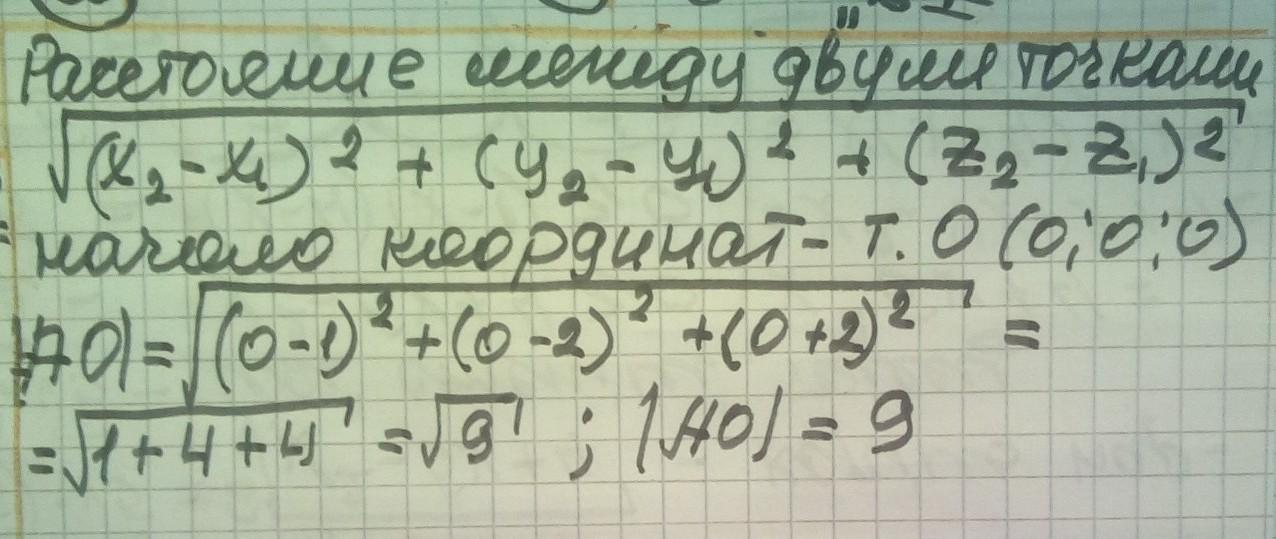 Расстояние между двумя точками
√(x₂-x₁)² + (y₂-y₁)² + (z₂-z₁)²
начало координат - т. О (0;0;0)
|AO| = √(0-1)² + (0-2)² + (0+2)² =
= √1+4+4 = √9 ; |AO| = 9